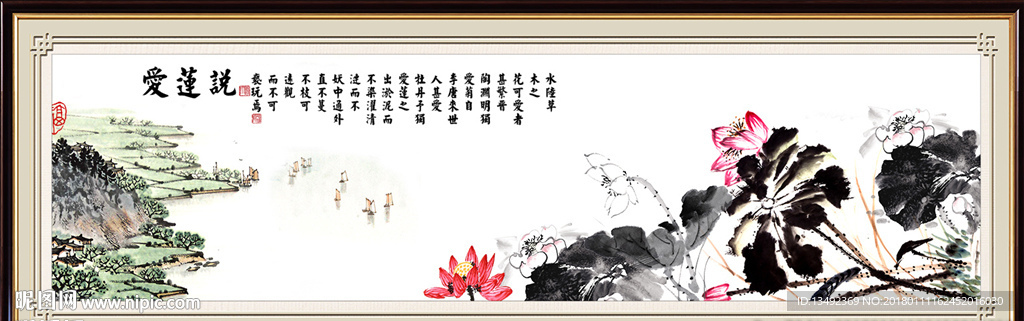 愛蓮説
水陸草
木之
花可愛者
甚繁晉
陶淵明獨
愛菊自
李唐来世
人甚愛
牡丹予獨
愛蓮之
出淤泥而
不染濯清
涟而不
妖中通外
直不蔓
不枝可
遠觀
而不可
亵玩焉
昵图网 www.nipic.com
ID:13492369 NO:20180111162452016030